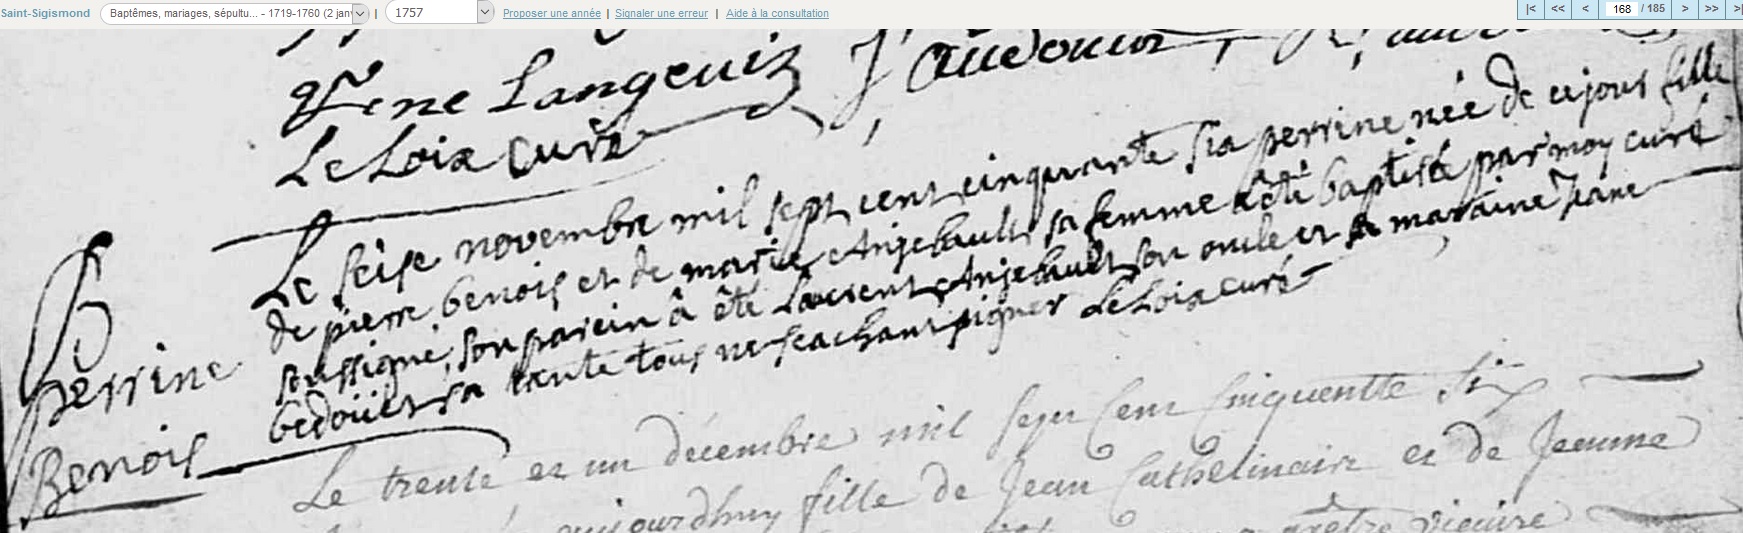 Saint-Sigismond Baptêmes, mariages, sépultu... - 1719-1760 (2 jan | 1757 Proposer une année | Signaler une erreur | Aide à la consultation |< << < 168 / 185 > >> >|
Rene Langevin J, audouin
Le Loix Curé
Le seise novembre mil sept cent cinquante six perrine née de ce jour fille
de pierre benois et de marie Anjebault sa femme a été baptisé par moy curé
soussigné, son parein à été Laurent Anjebault son oncle et sa maraine Jeane
bedoüet sa tante tous ne seachant signer Le Loix curé
perrine
Benois
Le trente et un décembre mil sept Cent Cinquentte Six
aujourdhuy fille de Jean Cathelinaire et de Jeanne
prêtre vicaire